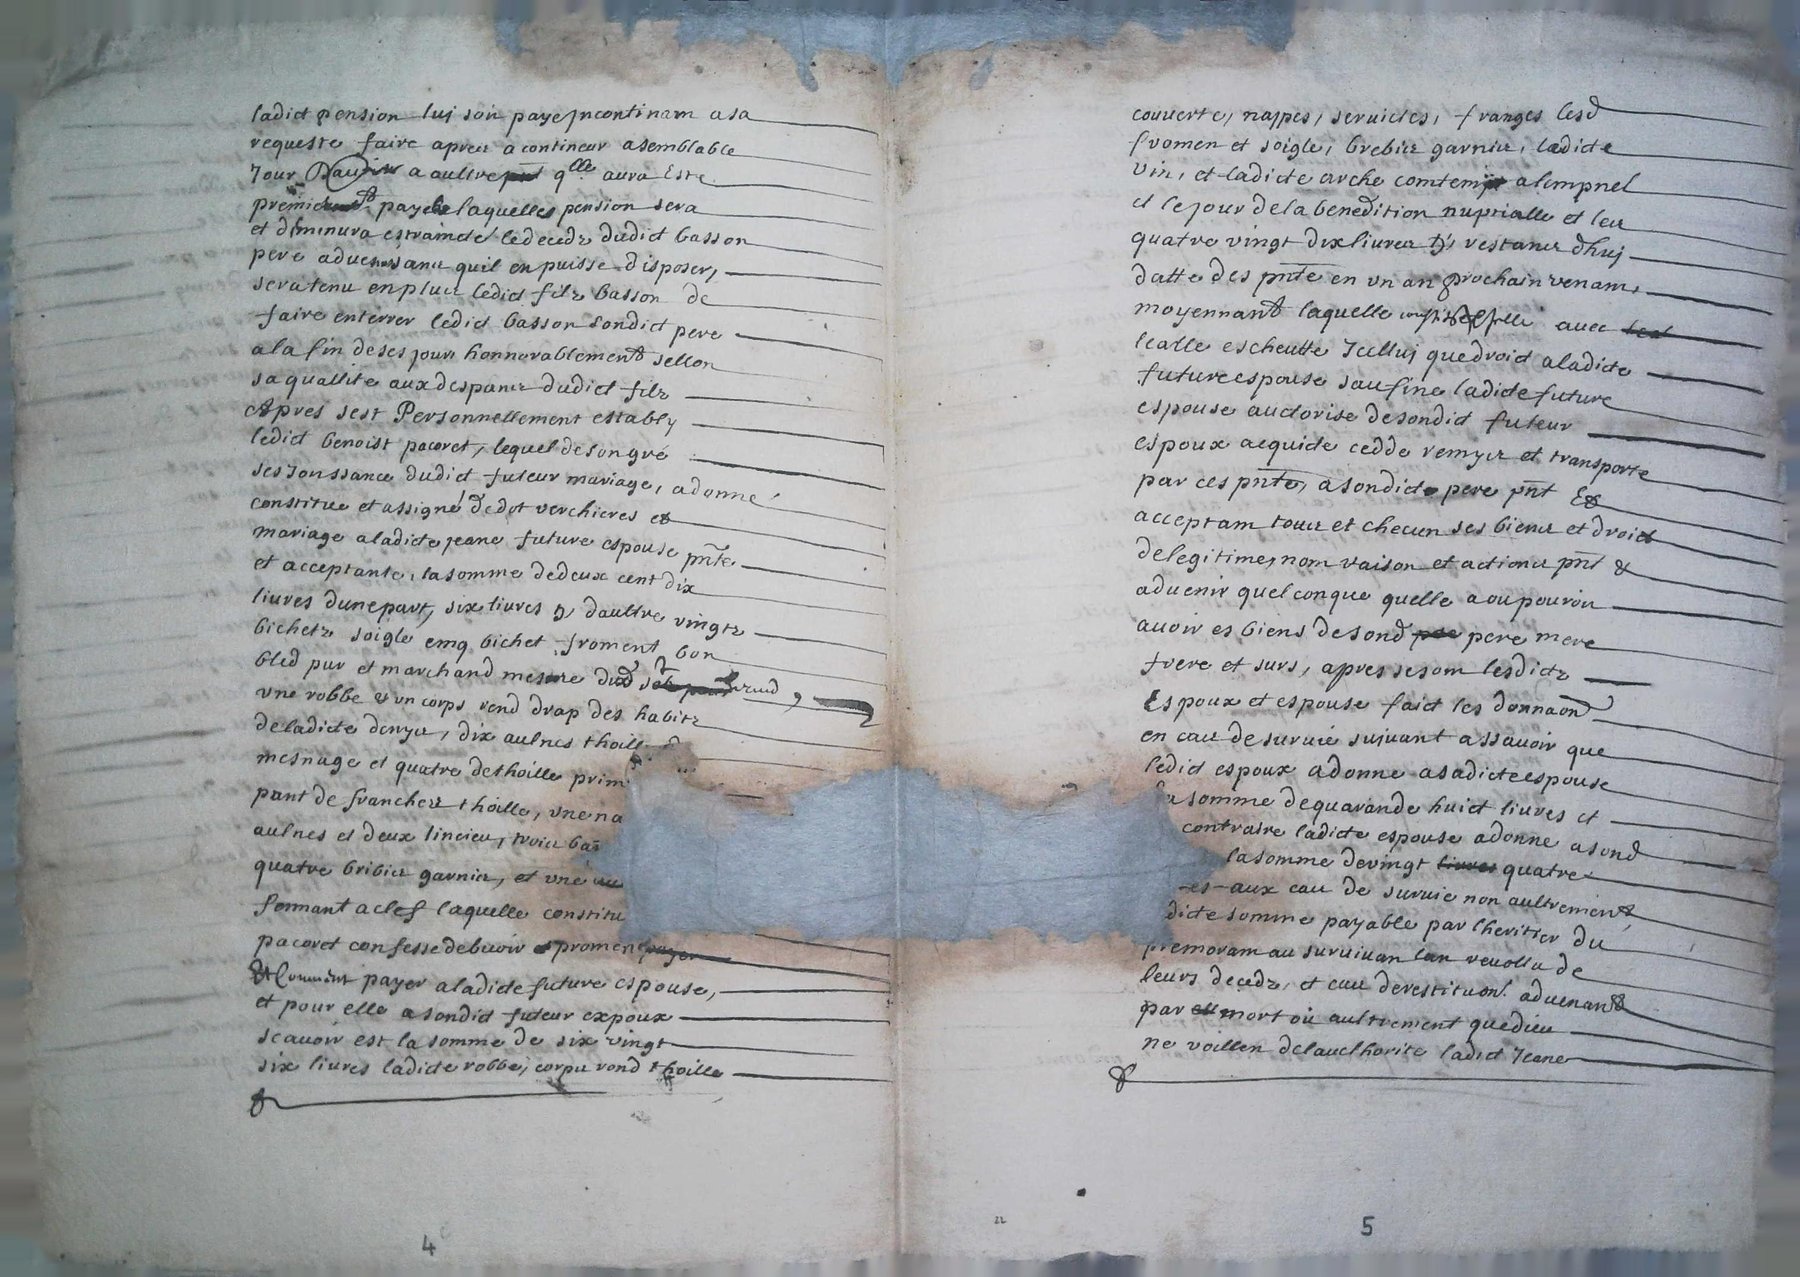 ladict pension luj soit paye Jncontinam a sa
requeste faire apres a contineur a semblable
Jour a aultre qlle aura este
payee laquelles pension sera
et diminura estraincte le decedz dudict basson
pere advenant quil en puisse disposer,
sera tenu en plus ledict filz basson de
faire enterrer ledict basson sondict pere
a la fin de ses jours honnorablement sellon
sa quallite aux despans dudict filz
Apres sest Personnellement estably
ledict benoist pacoret, lequel de son gre
sesJouissance dudict futeur mariage, a donne
constitue et assigné de dot verchieres et
mariage a ladicte jeane future espouse pnte
et acceptante, la somme de deux cent dix
livres dune part, six livres daultre vingtz
bichetz soigle cinq bichet froment bon
bled pur et marchand mesure dud
une robbe & un corps rond drap des habitz
de ladicte denyse, dix aulnes thoille
mesnage et quatre de thoille prim
pant de francher thoille, une na
aulnes et deux lincieu, trois
quatre bribis garnies, et une
fermant a clef laquelle constitu
pacoret confesse debvoir et promen payer
payer a ladicte future espouse,
et pour elle a sondict futeur expoux
scavoir est la somme de six vingt
six livres ladicte robbe, corps rond thoille
4
couverte, nappes, servietes, franges lesd
fromen et soigle, brebis garnies, ladicte
vin, et ladicte arche comtem a lempnel
et le jour de la benedition nuptialle et les
quatre vingt dix livres restans dhuj
datte des pnte en un an prochain venam,
moyennant laquelle avec lesd
lealle escheutte Jcelluj que droict a ladicte
future espouse sauf ladicte future
espouse auctorise de sondict futeur
espoux acquicte cedde remys et transporte
par ces pnte, a sondict pere pnt &
acceptam tous et checun ses biens et droict
de legitime, nom raison et actions pnt &
advenir quelconque quelle a ou pourroit
avoir es biens de sond pere mere
frere et surs, apres se som lesdictz
Espoux et espouse faict les donnaon
en cas de survie suivant assavoir que
ledict espoux a donne a sadicte espouse
la somme de quarande huict livres et
contraire ladicte espouse a donne a sond
la somme de vingt livres quatre
es aux cas de survie non aultrement
dicte somme payable par lheritier du
premoram au survivan lan revollu de
leurs decedz, et cas de restituon advenant
par mort ou aultrement que dieu
ne voillen de lauthorite ladict Jeane
22
5